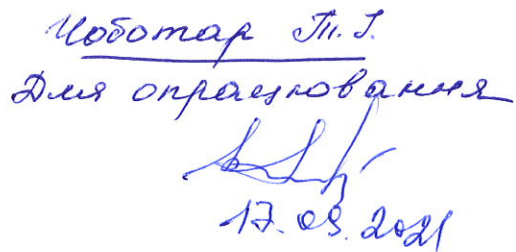 Чоботар Т. Г.
Для опрацювання
17.09.2021